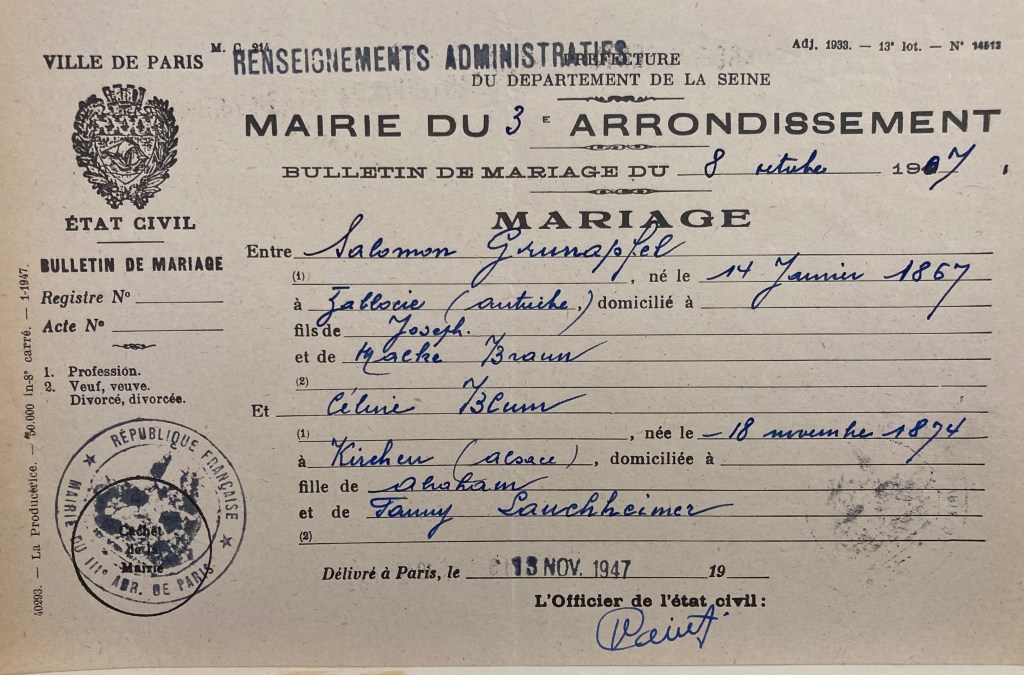 M. C. 214
Adj. 1933. — 13e lot. — No 14513
VILLE DE PARIS
RENSEIGNEMENTS ADMINISTRATIFS
PRÉFECTURE
DU DÉPARTEMENT DE LA SEINE
MAIRIE DU 3 E ARRONDISSEMENT
BULLETIN DE MARIAGE DU 8 octobre 1907
ÉTAT CIVIL
MARIAGE
BULLETIN DE MARIAGE
Registre No
Acte No
1. Profession.
2. Veuf, veuve.
Divorcé, divorcée.
Entre Salomon Grunapfel
(1) , né le 14 Janvier 1867
à Zablocie (autriche.) domicilié à
fils de Joseph.
et de Malke Braun
(2)
Et Céline Blum
(1) , née le 18 novembre 1874
à Kirchen (alsace), domiciliée à
fille de abraham
et de Fanny Lauchheimer
(2)
RÉPUBLIQUE FRANÇAISE
MAIRIE DU IIIe ARR. DE PARIS
Cachet
de la
Mairie
Délivré à Paris, le 13 NOV. 1947 19
L'Officier de l'état civil :
40293. — La Productrice. — 50.000 in-8o carré. — 1-1947.